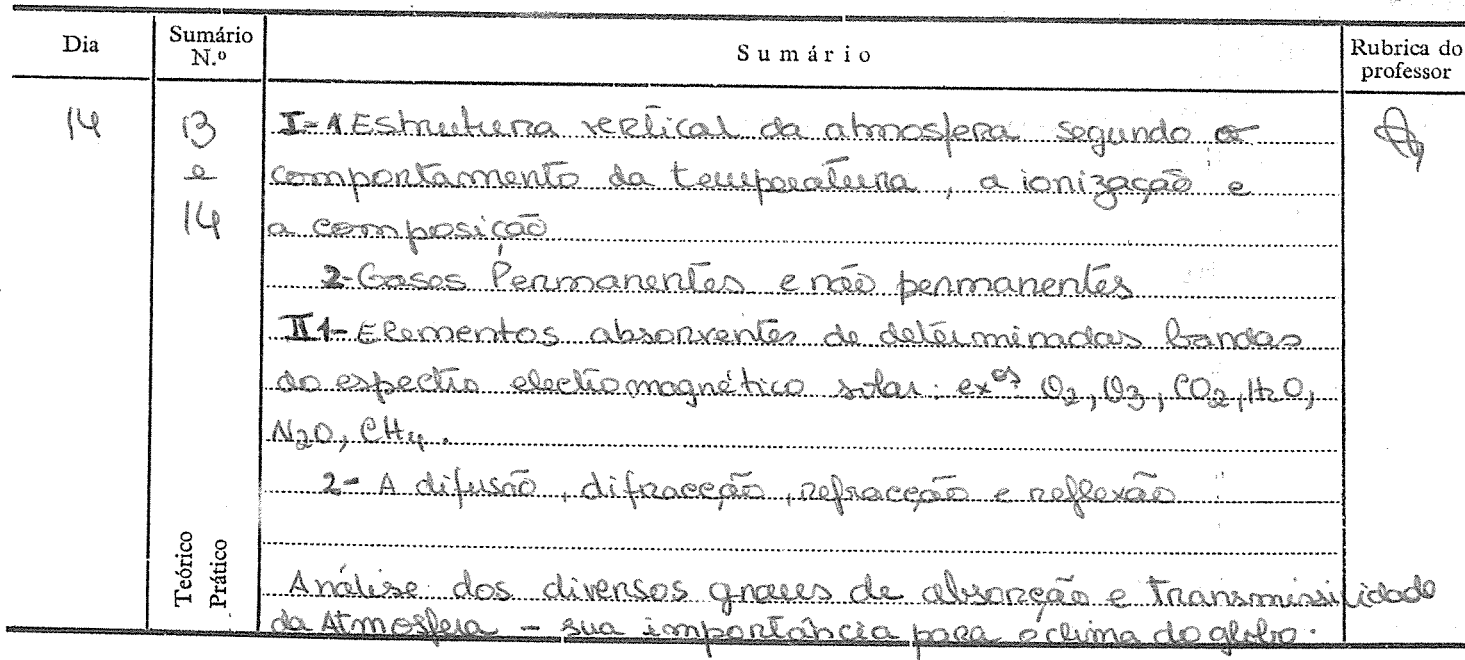 Dia
Sumário N.º
Sumário
Rubrica do professor
14
13 e 14
I-1 Estrutura vertical da atmosfera segundo o
comportamento da temperatura, a ionização e
a composição
2-Gases Permanentes e não permanentes
II 1- Elementos absorventes de determinadas bandas
do espectro electromagnético solar: exos O2, O3, CO2, H2O,
N2O, CH4.
2- A difusão, difracção, refracção e reflexão
Teórico
Prático
Análise dos diversos graus de absorção e Transmissividade
da Atmosfera - sua importância para o clima do globo.